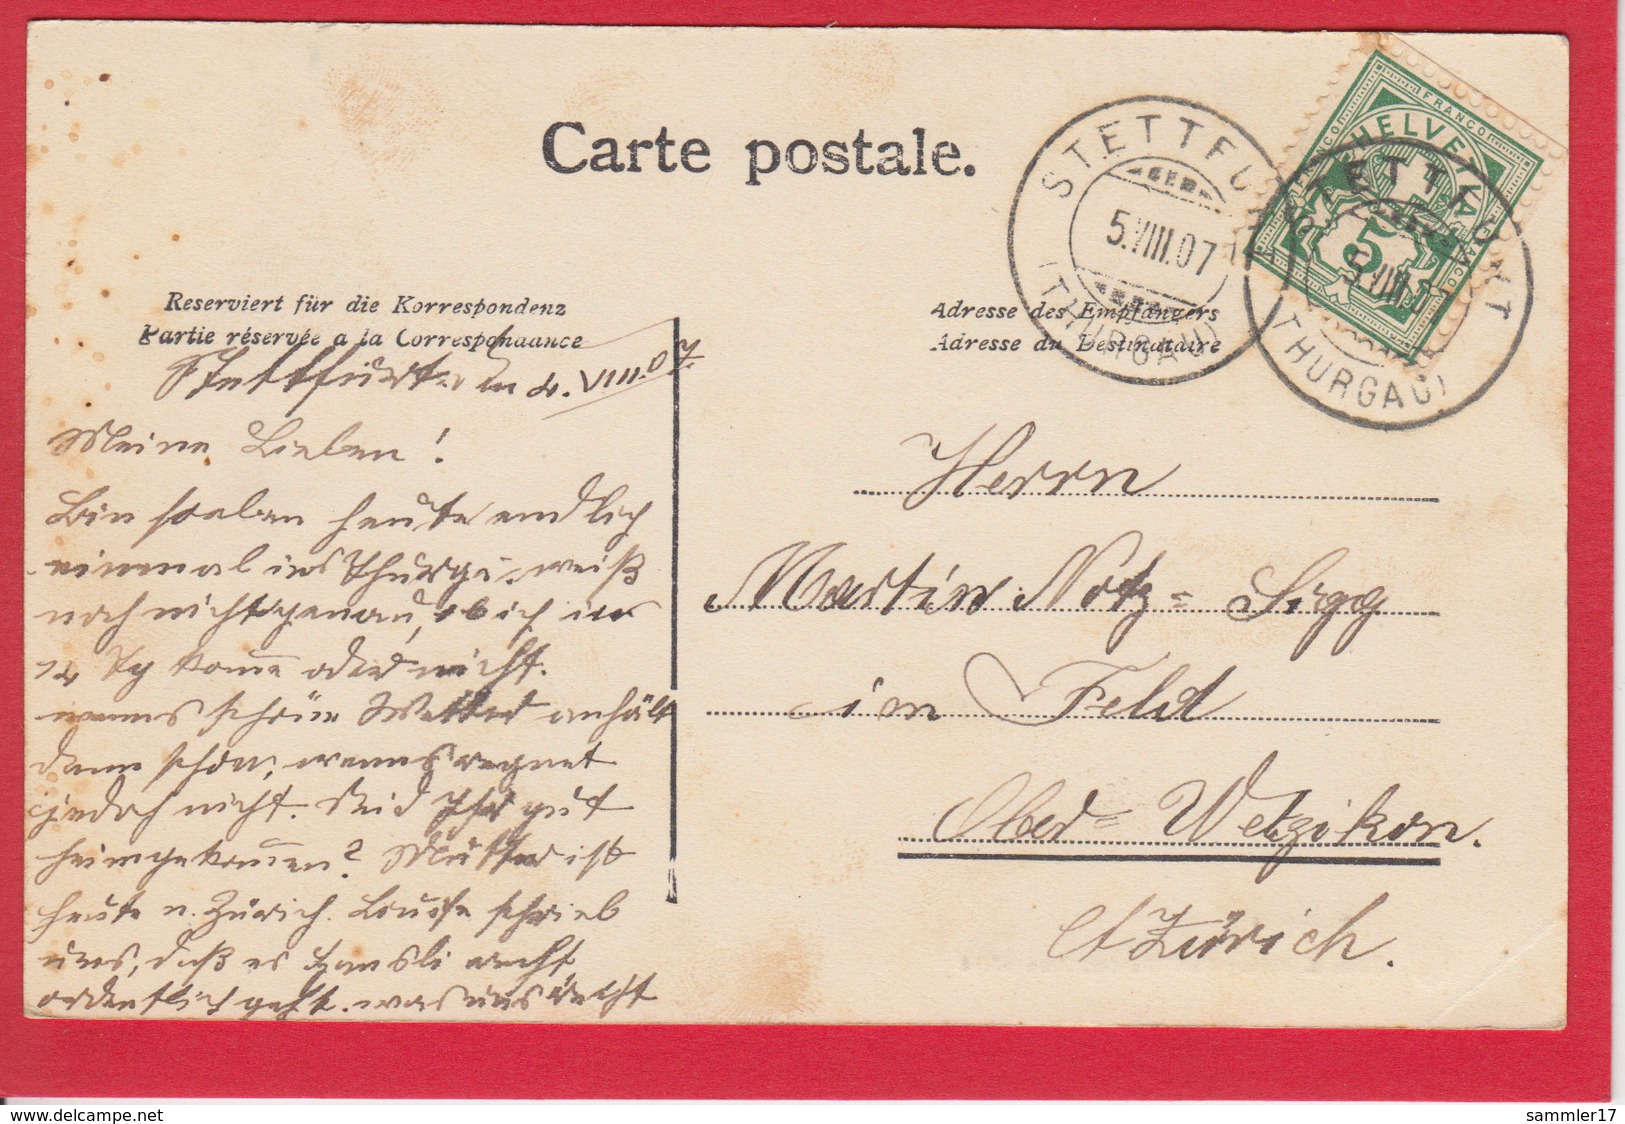 Carte postale.
Reserviert für die Korrespondenz
Partie réservée a la Correspondance
Adresse des Empfängers
Adresse du Destinataire
STETTFURT
5.VIII.07
(THURGAU)
FRANCO
HELVETIA
5
STETTFURT
5.VIII.07
(THURGAU)
Stettfurt, den 4.VIII.07.
Meine Lieben!
Bin soeben heute endlich
einmal ins Thurgi. weiß
noch nicht genau, ob ich im
14 Tg komme oder nicht.
wenns schön Wetter anhält
dann schon, wenns regnet
jedoch nicht. Seid Ihr gut
heimgekommen? Mutter ist
heute n. Zürich. Louise schrieb
uns, daß es Hansli recht
ordentlich geht. was uns recht
Herrn
Martin Notz-Sigg
im Feld
Ober-Wetzikon.
Ct Zürich.
www.delcampe.net
sammler17